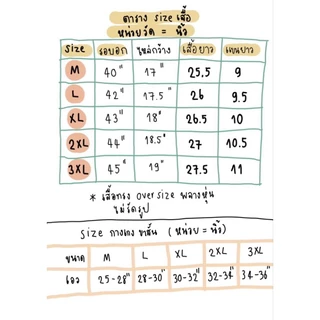 ตาราง Size เสื้อ
หน่วยวัด = นิ้ว
Size รอบอก ไหล่กว้าง เสื้อยาว แขนยาว
M 40" 17" 25.5 9
L 42" 17.5" 26 9.5
XL 43" 18" 26.5 10
2XL 44" 18.5" 27 10.5
3XL 45" 19" 27.5 11
* เสื้อทรง over size พลางหุ่น
ไม่รัดรูป
Size กางเกง ขาสั้น (หน่วย = นิ้ว)
ขนาด M L XL 2XL 3XL
เอว 25-28" 28-30" 30-32" 32-34" 34-36"